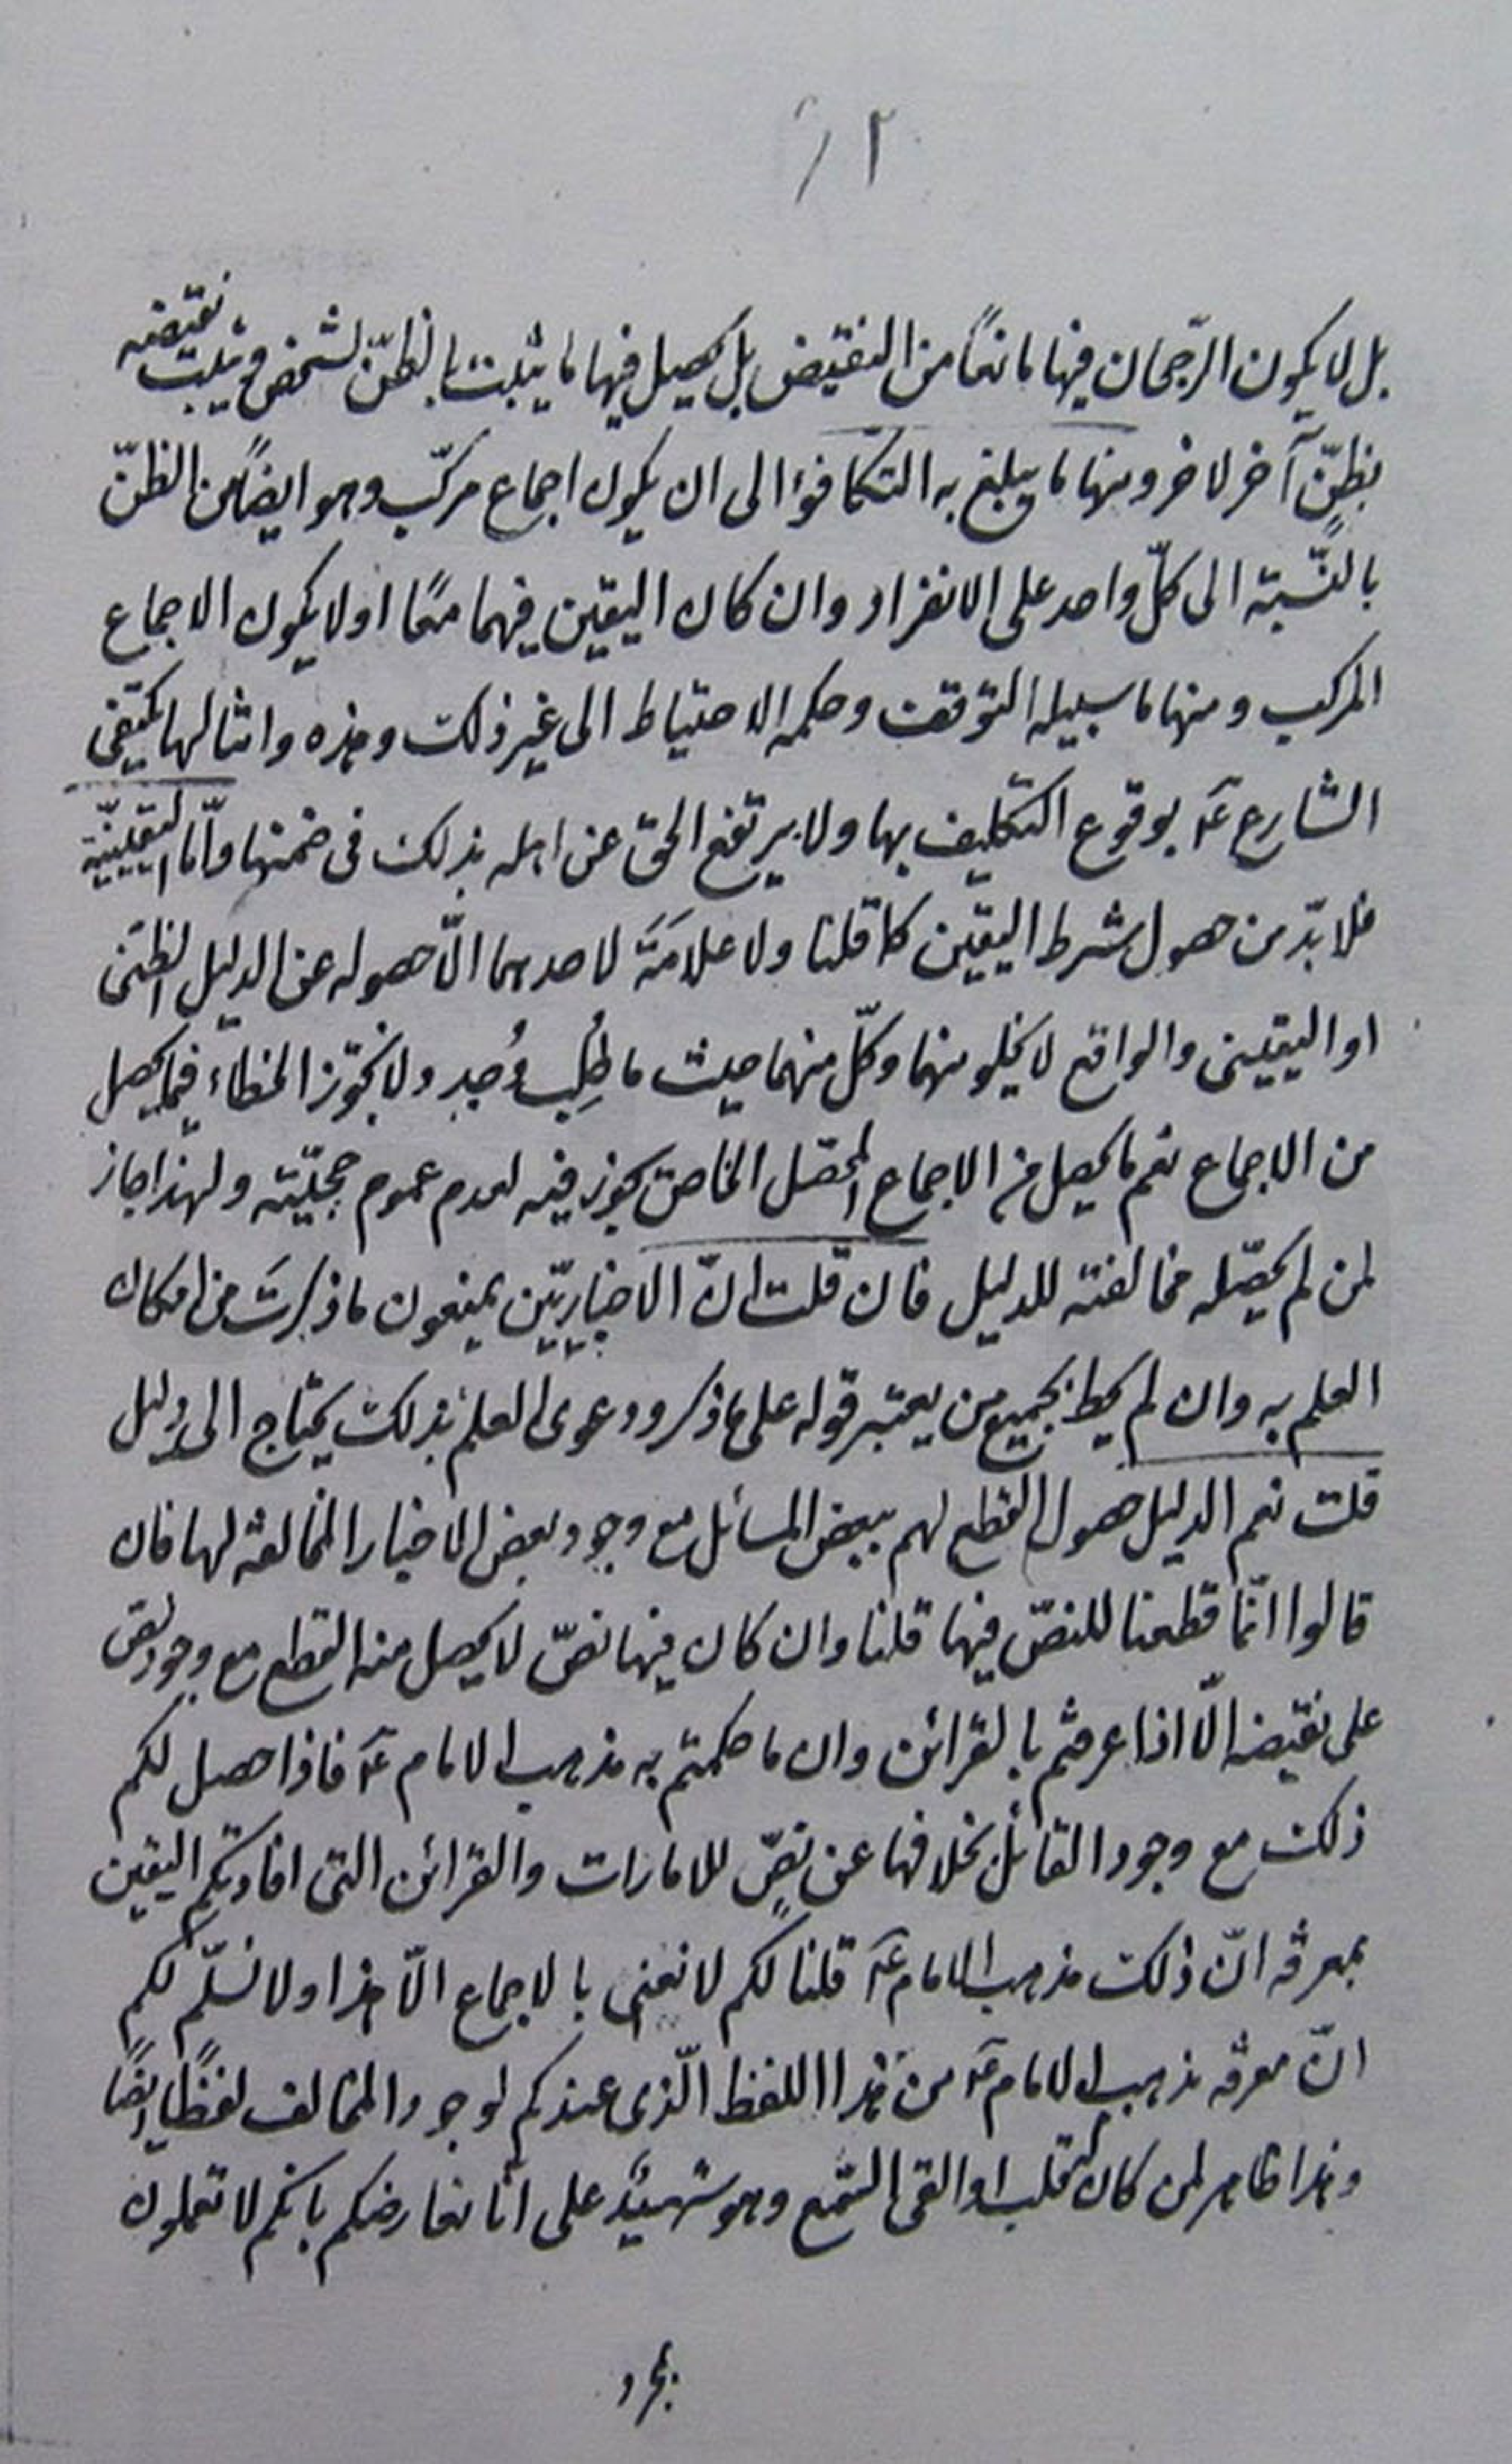 ١٢
بل لا يكون الرّجحان فيها مانعًا من النقيض بل يحصل فيها ما يثبت بالظنّ لشخص ويثبت نقيضه
بظنٍّ آخر لاخر ومنها ما يبلغ به التكافؤ الى ان يكون اجماع مركّب وهو ايضًا من الظنّ
بالنّسبة الى كلّ واحد على الانفراد وان كان اليقين فيهما معًا او لا يكون الاجماع
المركب ومنها ما سبيله التوقف وحكمه الاحتياط الى غير ذلك وهذه وامثالها يكتفى
الشارع ع بوقوع التكليف بها ولا يرتفع الحق عن اهله بذلك فى ضمنها وامّا اليقينيّة
فلا بدّ من حصول شرط اليقين كما قلنا ولا علامَةَ لاحدهما الّا حصوله عن الدليل الظنّى
او اليقينى والواقع لا يخلو منهما وكلّ منهما حيث ما طُلِب وُجد ولا نجوّز الخطاء فيما يحصل
من الاجماع نعم ما يحصل من الاجماع المحصّل الخاص يجوز فيه لعدم عموم حجيّته ولهذا جاز
لمن لم يحصّله مخالفته للدليل فان قلت انّ الاخباريّين يمنعون ما ذكرتَ من امكان
العلم به وان لم يحط بجميع من يعتبر قوله على ما ذكر ودعوى العلم بذلك يحتاج الى دليل
قلت نعم الدليل حصول القطع لهم ببعض المسائل مع وجود بعض الاخبار المخالفة لها فان
قالوا انّما قطعنا للنصّ فيها قلنا وان كان فيها نصّ لا يحصل منه القطع مع وجود نص
على نقيضه الّا اذا عرفتم بالقرائن وان ما حكمتم به مذهب الامام ع فاذا حصل لكم
ذلك مع وجود القائل بخلافها عن نصٍّ للامارات والقرائن التى افادتكم اليقين
بمعرفة انّ ذلك مذهب الامام ع قلنا لكم لا نعنى بالاجماع الّا هذا ولا نسلّم لكم
انّ معرفة مذهب الامام ع من هذا اللفظ الّذى عندكم لوجود المخالف لفظًا ايضًا
وهذا ظاهر لمن كان له قلب او القى السّمع وهو شهيدٌ على انّا نعارضكم بانكم لا تعملون
بمجرد